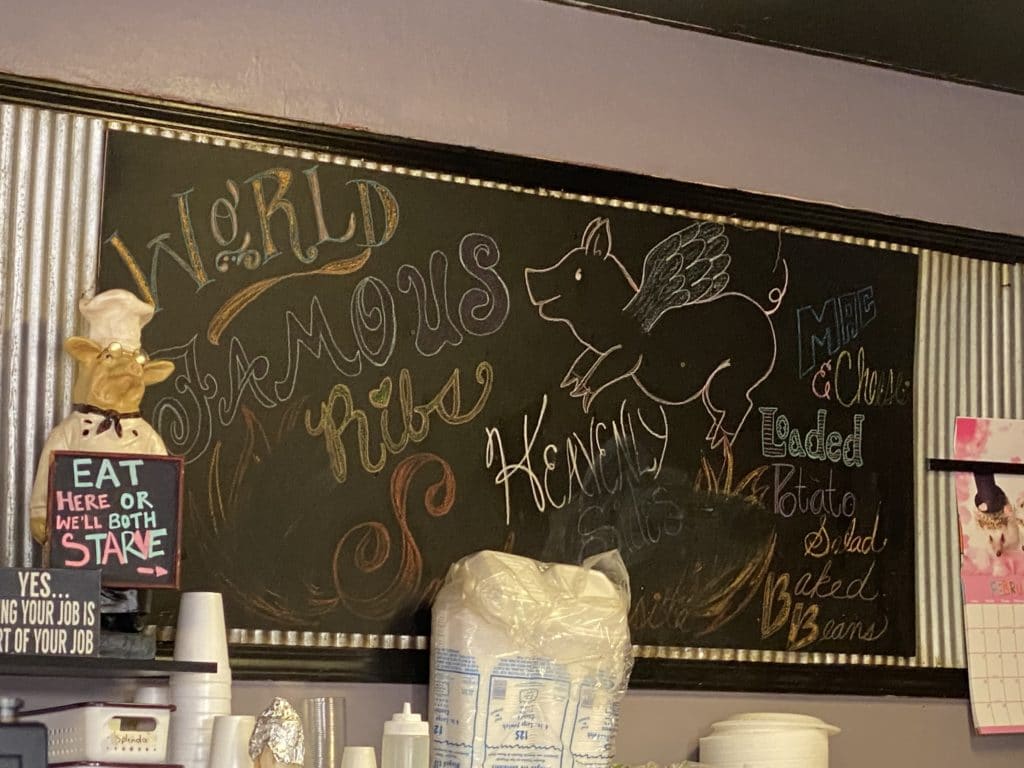 WORLD
FAMOUS
Ribs
HEAVENLY
MAC
& Cheese
Loaded
Potato
Salad
Baked
Beans
EAT
HERE OR
WE'LL BOTH
STARVE
YES...
YOUR JOB IS
OF YOUR JOB
Splenda
12
125